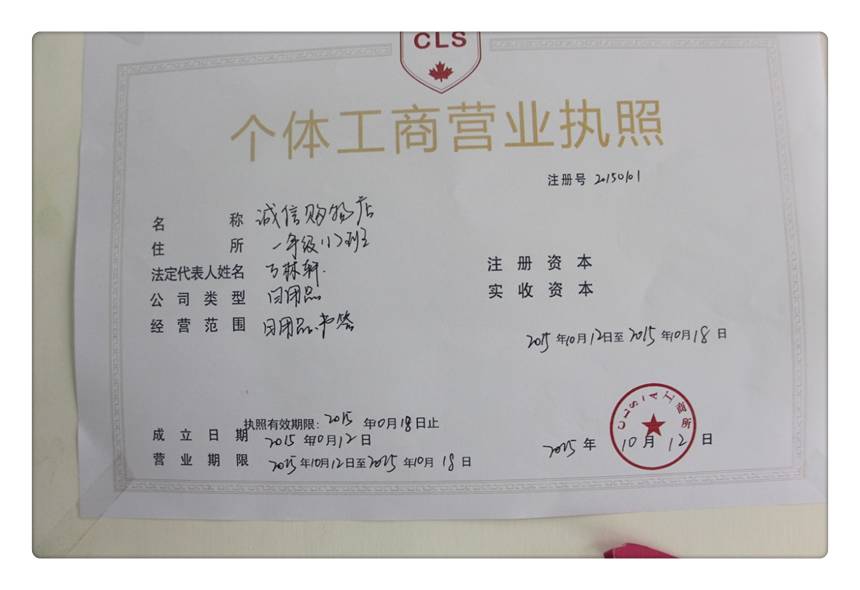 CLS
个体工商营业执照
注册号 20150101
名 称 诚信购物店
住 所 一年级(1)班
法定代表人姓名 林轩
公司类型 日用品
经营范围 日用品、书签
注册资本
实收资本
2015年10月12日至2015年10月18日
执照有效期限:2015年10月18日止
成立日期 2015年10月12日
营业期限 2015年10月12日至2015年10月18日
2015年10月12日
CLSIA工商所